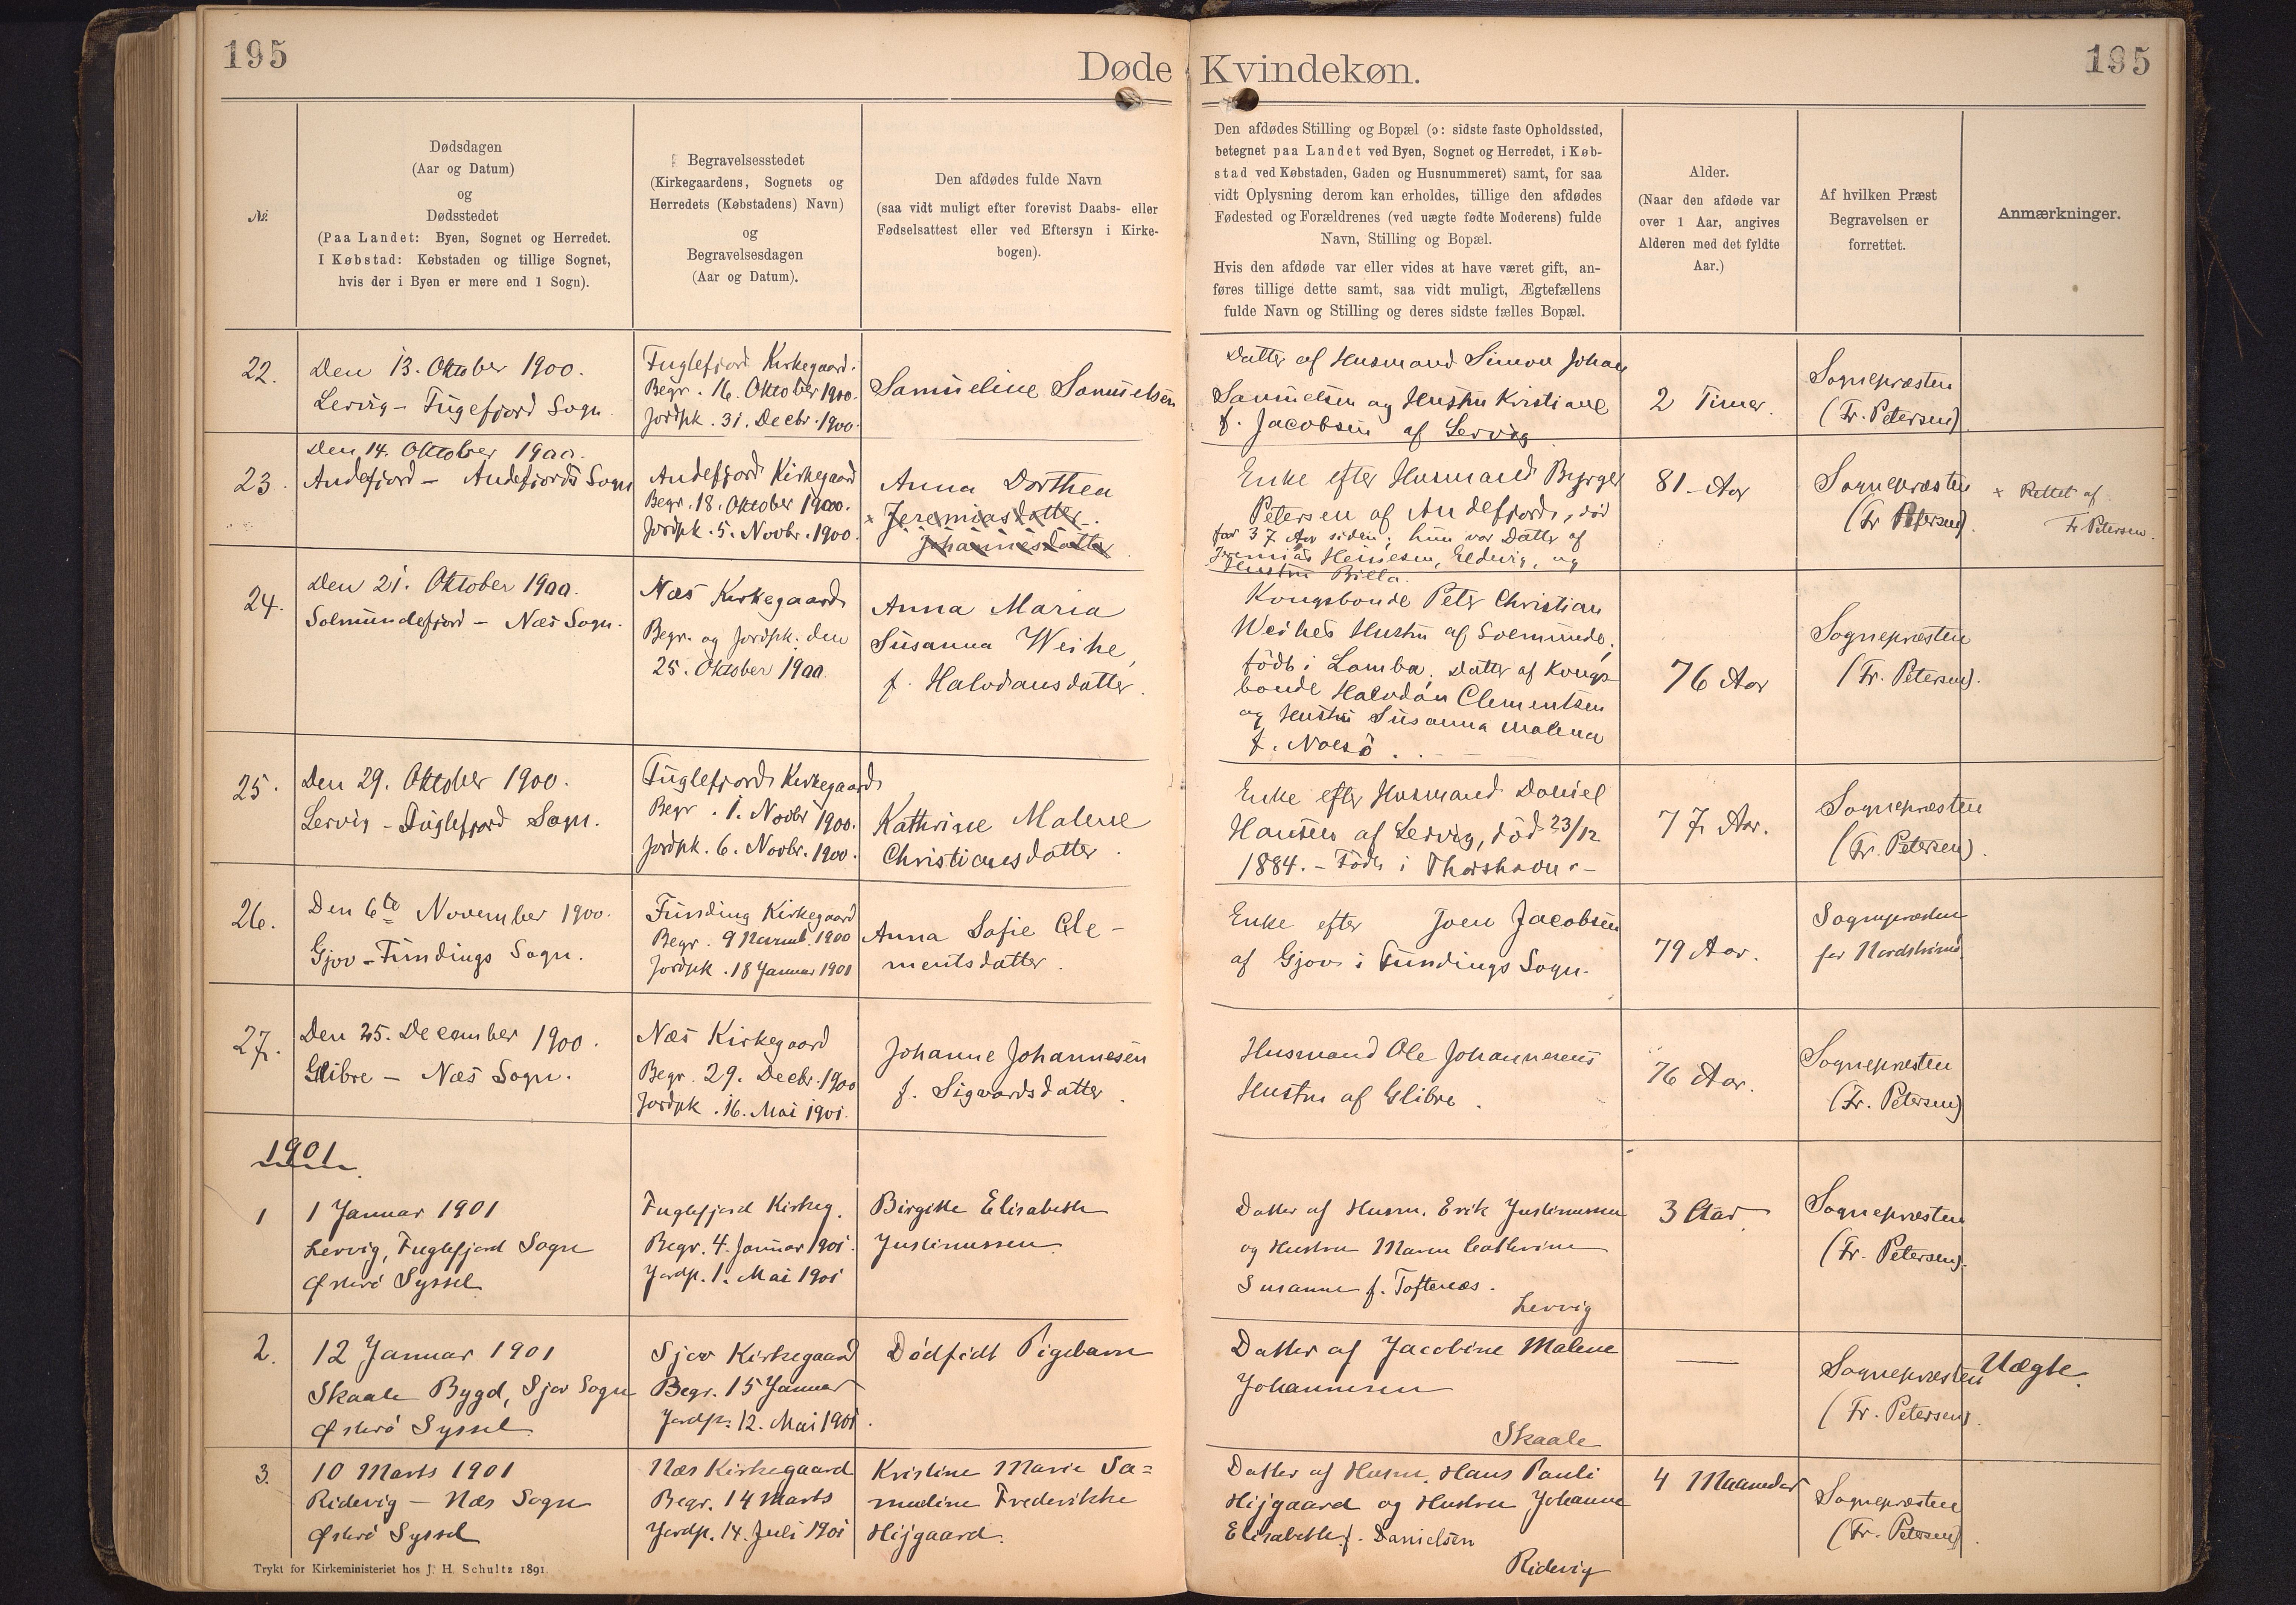 195
Døde Kvindekøn.
195
№.
Dødsdagen
(Aar og Datum)
og
Dødsstedet
(Paa Landet: Byen, Sognet og Herredet.
I Købstad: Købstaden og tillige Sognet,
hvis der i Byen er mere end 1 Sogn).
Begravelsesstedet
(Kirkegaardens, Sognets og
Herredets (Købstadens) Navn)
og
Begravelsesdagen
(Aar og Datum).
Den afdødes fulde Navn
(saa vidt muligt efter forevist Daabs- eller
Fødselsattest eller ved Eftersyn i Kirke-
bogen).
Den afdødes Stilling og Bopæl (ɔ: sidste faste Opholdssted,
betegnet paa Landet ved Byen, Sognet og Herredet, i Køb-
stad ved Købstaden, Gaden og Husnummeret) samt, for saa
vidt Oplysning derom kan erholdes, tillige den afdødes
Fødested og Forældrenes (ved uægte fødte Moderens) fulde
Navn, Stilling og Bopæl.
Hvis den afdøde var eller vides at have været gift, an-
føres tillige dette samt, saa vidt muligt, Ægtefællens
fulde Navn og Stilling og deres sidste fælles Bopæl.
Alder.
(Naar den afdøde var
over 1 Aar, angives
Alderen med det fyldte
Aar.)
Af hvilken Præst
Begravelsen er
forrettet.
Anmærkninger.
22.
Den 13. Oktober 1900.
Lervig – Fugefjord Sogn
Fuglefjord Kirkegaard.
Begr. 16. Oktober 1900.
Jordpk. 31. Decbr. 1900.
Samueline Samuelsen
Datter af Husmand Simon Johan
Samuelsen og Hustru Kristiane
f. Jacobsen af Lervig
2 Timer.
Sognepræsten
(Fr. Petersen).
23.
Den 14. Oktober 1900.
Andefjord – Andefjords Sogn
Andefjord Kirkegaard
Begr. 18. Oktober 1900.
Jordpk. 5. Novbr. 1900.
Anna Dorthea
× Jeremiasdatter.
Johannesdatter
Enke efter Husmand Byrger
Petersen af Andefjord, død
for 37 Aar siden; hun var Datter af
Jeremias Heinesen, Eldevig, og
Hustru Billa.
81 – Aar
Sognepræsten
(Fr Petersen).
× Rettet af
Fr Petersen.
24.
Den 21. Oktober 1900.
Solmundefjord – Næs Sogn.
Næs Kirkegaard
Begr. og Jordpk. den
25. Oktober 1900
Anna Maria
Susanna Weihe,
f. Halvdansdatter.
Kongsbonde Peter Christian
Weihes Hustru af Solmunde,
født i Lamba, Datter af Kongs
bonde Halvdan Clementsen
og Hustru Susanna Malena
f. Nolsö.
76 Aar
Sognepræsten
(Fr. Petersen).
25.
Den 29. Oktober 1900.
Lervig – Fuglefjord Sogn.
Fuglefjord Kirkegaard
Begr. 1. Novbr 1900.
Jordpk. 6. Novbr. 1900.
Kathrine Malene
Christiansdatter.
Enke efter Husmand Daniel
Hansen af Lervig, död 23/12
1884. – Födt i Thorshavn. –
77 Aar.
Sognepræsten
(Fr. Petersen).
26.
Den 6te November 1900.
Gjov – Fundings Sogn.
Funding Kirkegaard
Begr. 9 Novemb. 1900
Jordpk. 18 Januar 1901
Anna Sofie Cle-
mentsdatter.
Enke efter Joen Jacobsen
af Gjov i Fundings Sogn.
79 Aar.
Sognepræsten
for Nordströmö
27.
Den 25. December 1900.
Glibre – Næs Sogn.
Næs Kirkegaard
Begr. 29. Decbr. 1900
Jordpk. 16. Mai 1901.
Johanne Johannesen
f. Sigvardsdatter.
Husmand Ole Johannesens
Hustru af Glibre.
76 Aar.
Sognepræsten
(Fr. Petersen)
1901.
1
1 Januar 1901
Lervig, Fuglefjord Sogn
Østerö Syssel
Fuglefjord Kirkeg.
Begr. 4. Januar 1901.
Jordp. 1. Mai 1901
Birgitte Elisabeth
Justinussen
Datter af Husm. Erik Justinussen
og Hustru Maren Cathrine
Susanne f. Toftenæs.
Lervig
3 Aar
Sognepræsten
(Fr. Petersen).
2.
12 Januar 1901
Skaale Bygd, Sjov Sogn
Østerö Syssel
Sjov Kirkegaard
Begr. 15 Januar
Jordp. 12. Mai 1901.
Dödfödt Pigebarn
Datter af Jacobine Malene
Johannesen
Skaale
—
Sognepræsten
(Fr. Petersen).
Uægte.
3.
10 Marts 1901
Ridevig – Næs Sogn
Østerö Syssel
Næs Kirkegaard
Begr. 14 Marts
Jordp. 14. Juli 1901
Kristine Marie Sa=
mueline Frederikke
Højgaard.
Datter af Husm. Hans Pauli
Højgaard og Hustru Johanne
Elisabeth f. Danielsen
Ridevig
4 Maaneder
Sognepræsten
(Fr. Petersen).
Trykt for Kirkeministeriet hos J. H. Schultz 1891.